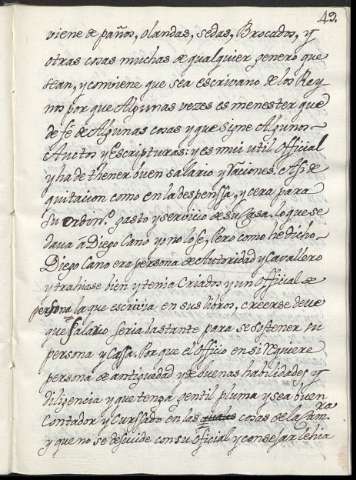 42.
viene de paños, olandas, sedas, Brocados, y
otras cosas muchas de qualquier genero que
sean, y comiene que sea escrivano de los Rey
nos por que Algunas vezes es menester que
de fe de Algunas cosas y que signe Algunos
Autos y Escripturas: y es mui util official
y ha de thener buen salario y Raciones. Asi de
quitacion como en la despensa, y cera para
su ordin.º gasto y servicio de su Casa. lo que se
dava a Diego Cano yo no lo se, Pero como he dicho
Diego Cano era persona de Autoridad y Cavallero
y trahiase bien y tenia Criados y un official de
persona la que escrivia en sus libros, creerse deve
que salario seria bastante para se sostener su
persona y Cassa. Porque el offiço en si requiere
persona de antiguedad y de buenas habilidades y
diligencia y que tenga gentil pluma y sea buen
Contador y Cursado en las cosas de la Cam.ra
y que no se descuide con su oficial y